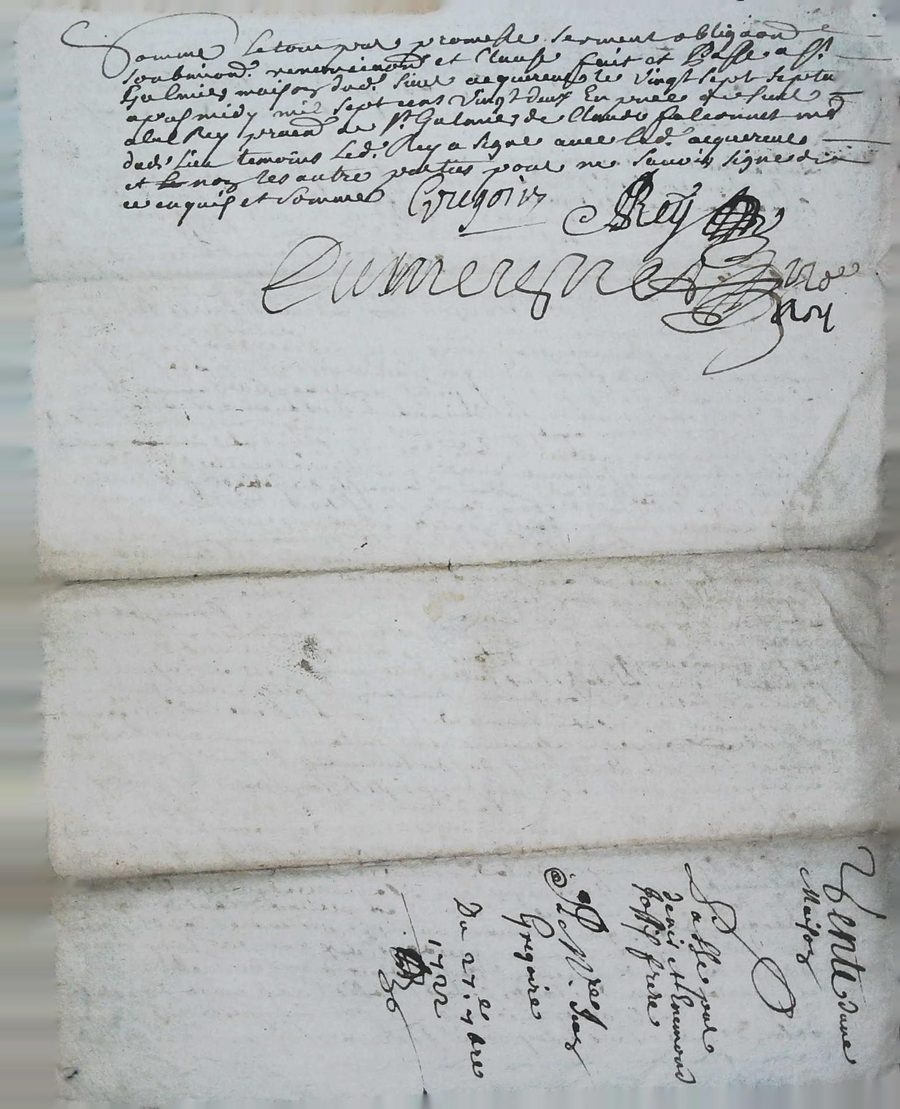 Somme Le tout par promesse serment obligaon
soubmiond. renonciaond et Clause fait et Passe a St.
Galmier maison dud. sieur acquereur le vingt sept septe
apres midy mil sept cens vingt deux En pnce de sieur
abel Rey praend de St Galmier de Claude falconnet md
dud. Lieu temoins Led. Rey a signe avec led. acquereur
et non les autre parties pour ne savoir signe de
ce enquis et sommes Gregoire Rey
Dumeynet nore
Roy
Vente dune
Maison
Passee par
denis et Enemond
freres
a Me Jean
Gregoire
Du 27e 7bre
1722